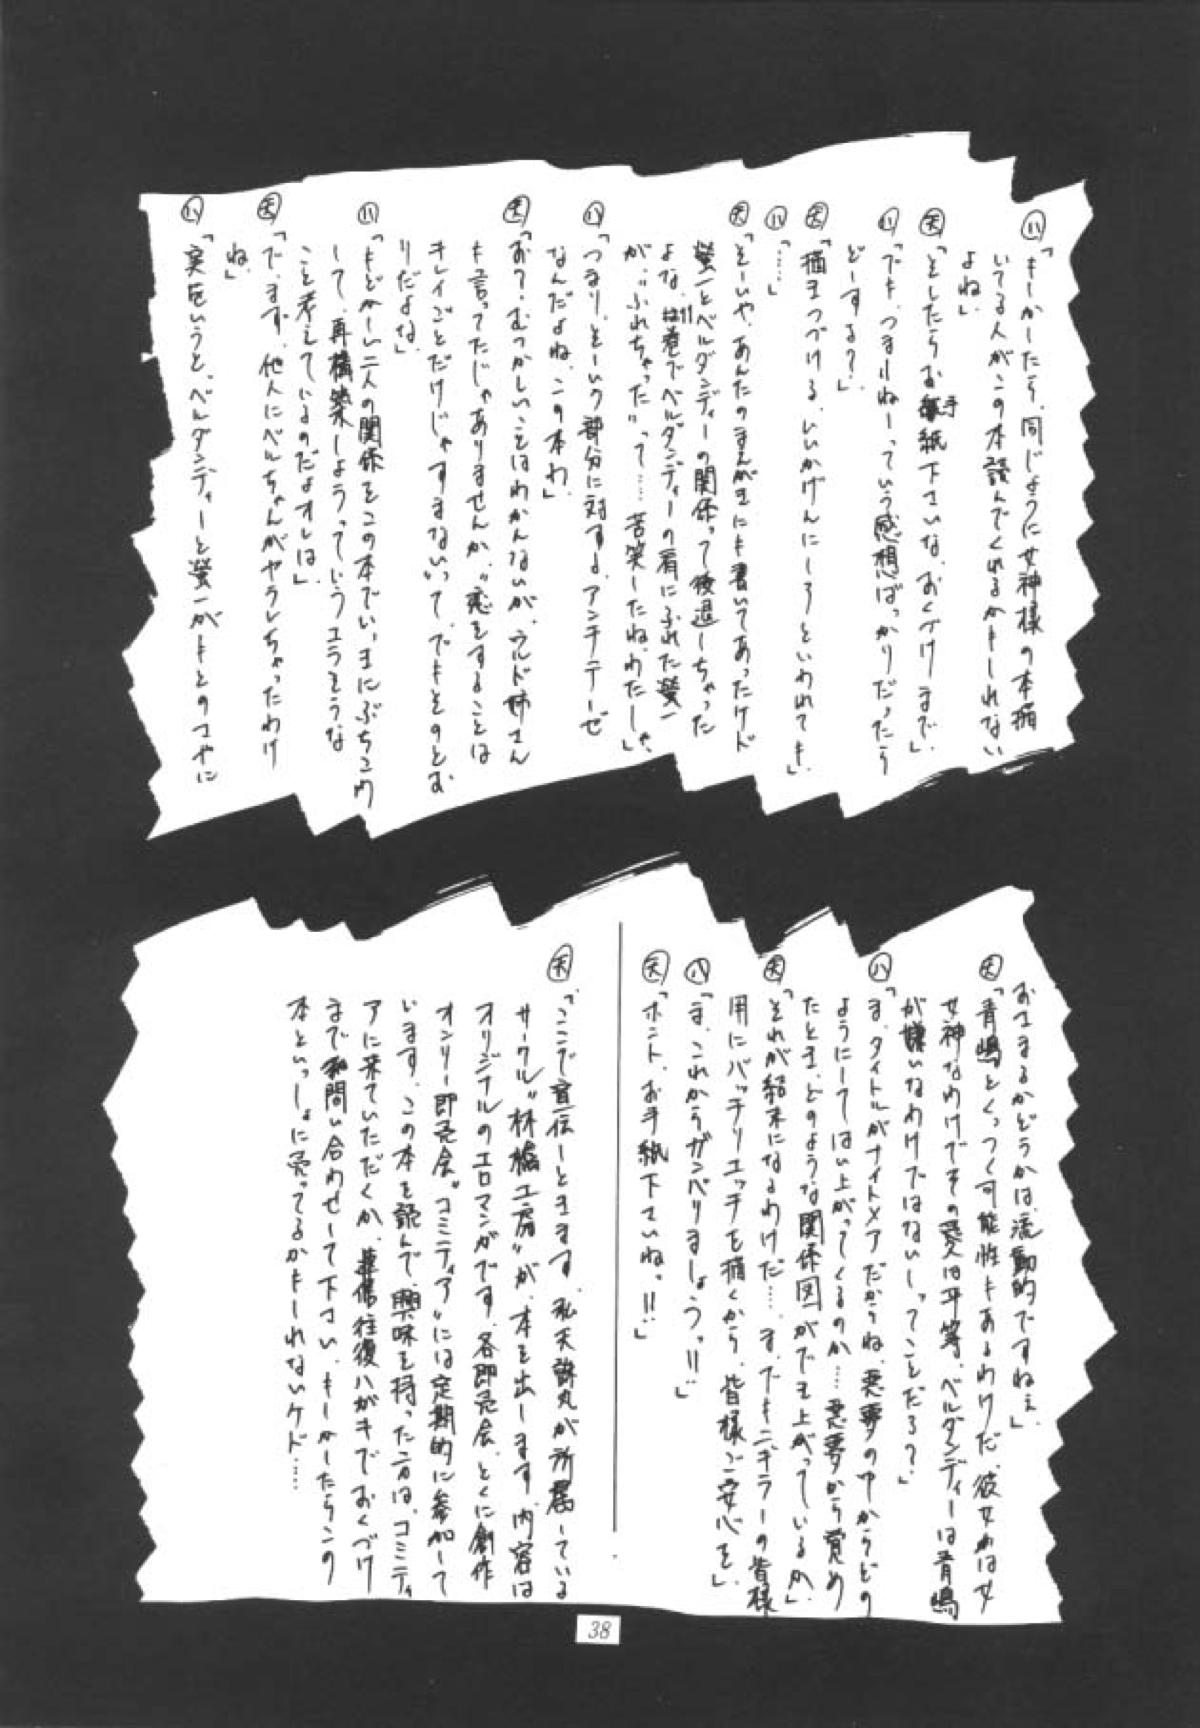 ㋩「もしかしたら、同じように女神様の本描
いてる人がこの本読んでくれるかもしれない
よね」
天「そしたらお手紙下さいな、おくづけまで」
㋩「でも、つまんねーっていう感想ばっかりだったら
どーする?」
天「描きつづける、いいかげんにしろといわれても」
㋩「……」
天「そーいや、あんたのまんがまにも書いてあったけド
螢一とベルダンディーの関係って後退しちゃった
よな、11巻でベルダンディーの肩にふれた螢一
が、"ふれちゃった"って……苦笑したね、わたしゃ」
㋩「つまり、そーいう部分に対する、アンチテーゼ
なんだよね、この本わ」
天「おで、むつかしいことはわかんないが、ウルド姉さん
も言ってたじゃありませんか、"恋をすることは
キレイごとだけじゃすまない"って、でもそのとお
りだよな」
㋩「もどかしい二人の関係をこの本でいっきにぶちこわ
して、再構築しようっていうエラそうな
ことを考えているのだよオレは」
天「で、まず、他人にベルちゃんがヤラレちゃったわけ
ね」
㋩「実をいうと、ベルダンディーと螢一がもとのさやに
おさまるかどうかは、流動的ですねぇ」
天「青嶋とくっつく可能性もあるわけだ、彼女わは女
女神なわけでその愛は平等、ベルダンディーは青嶋
が嫌いなわけではないしってことだろ?」
㋩「ま、タイトルがナイトメアだからね、悪夢の中からどの
ようにしてはい上がってくるのか…悪夢から覚め
たとき、どのような関係図ができ上がっているか」
天「それが結末になるわけだ…、ま、でもニギラーの皆様
用にバッチリエッチを描くから、皆様ご安心を」
㋩「ま、これからガンバリましょうっ!!」
天「ホント、お手紙下さいねっ!!」
天「ここで宣伝しときます、私天誅丸が所属している
サークル"林檎工房"が、本を出します、内容は
オリジナルのエロマンガです、各即売会、とくに創作
オンリー即売会"コミティア"には定期的に参加して
います、この本を読んで、興味を持った方は、コミティ
アに来ていただくか、往復ハガキでおくづけ
まで問い合わせして下さい、もしかしたらこの
本といっしょに売ってるかもしれないケド……
38